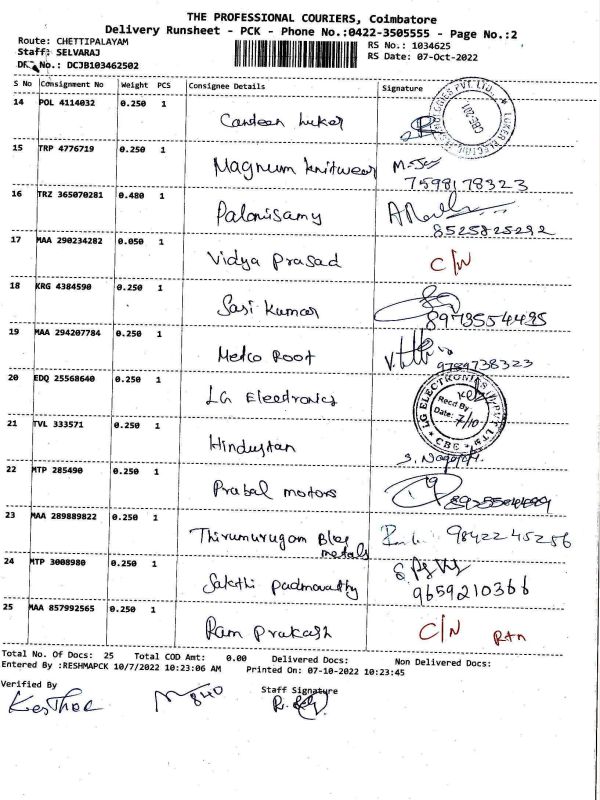 THE PROFESSIONAL COURIERS, Coimbatore
Delivery Runsheet - PCK - Phone No.:0422-3505555 - Page No.:2
Route: CHETTIPALAYAM
RS No.: 1034625
Staff: SELVARAJ
RS Date: 07-Oct-2022
No.: DCJB103462502
S No Consignment No Weight PCS Consignee Details Signature
14 POL 4114032 0.250 1
Canteen
15 TRP 4776719 0.250 1
Magnum knitwear
7598178323
16 TRZ 365070281 0.480 1
Palanisamy
8525825292
17 MAA 290234282 0.050 1
Vidya Prasad C/N
18 KRG 4384590 0.250 1
Sasi Kumar
8973554435
19 MAA 294207784 0.250 1
Metco Roof
9789738323
20 EDQ 25568640 0.250 1
LG Electronics
LG ELECTRONICS
Recd By
Date: 7/10
CBE
21 TVL 333571 0.250 1
Hindustan
22 MTP 285490 0.250 1
Prabal motors
23 MAA 289889822 0.250 1
Thirumurugan Blog 9842245256
metals
24 MTP 3008980 0.250 1
Sakthi padmavathy 9659210366
25 MAA 857992565 0.250 1
Ram Prakash C/N Rtn
Total No. Of Docs: 25 Total COD Amt: 0.00 Delivered Docs: Non Delivered Docs:
Entered By :RESHMAPCK 10/7/2022 10:23:06 AM Printed On: 07-10-2022 10:23:45
Verified By
Staff Signature
840